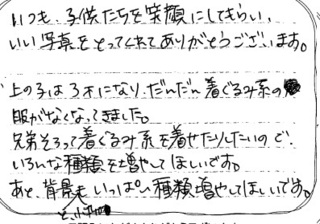 いつも、子供たちを笑顔にしてもらい、
いい写真をとってくれてありがとうございます。
上の子は3才になり、だんだん着ぐるみ系の
服がなくなってきました。
兄弟そろって着ぐるみ系を着せたりしたいので、
いろんな種類を増やしてほしいです。
あと、背景もいっぱい種類増やしてほしいです。